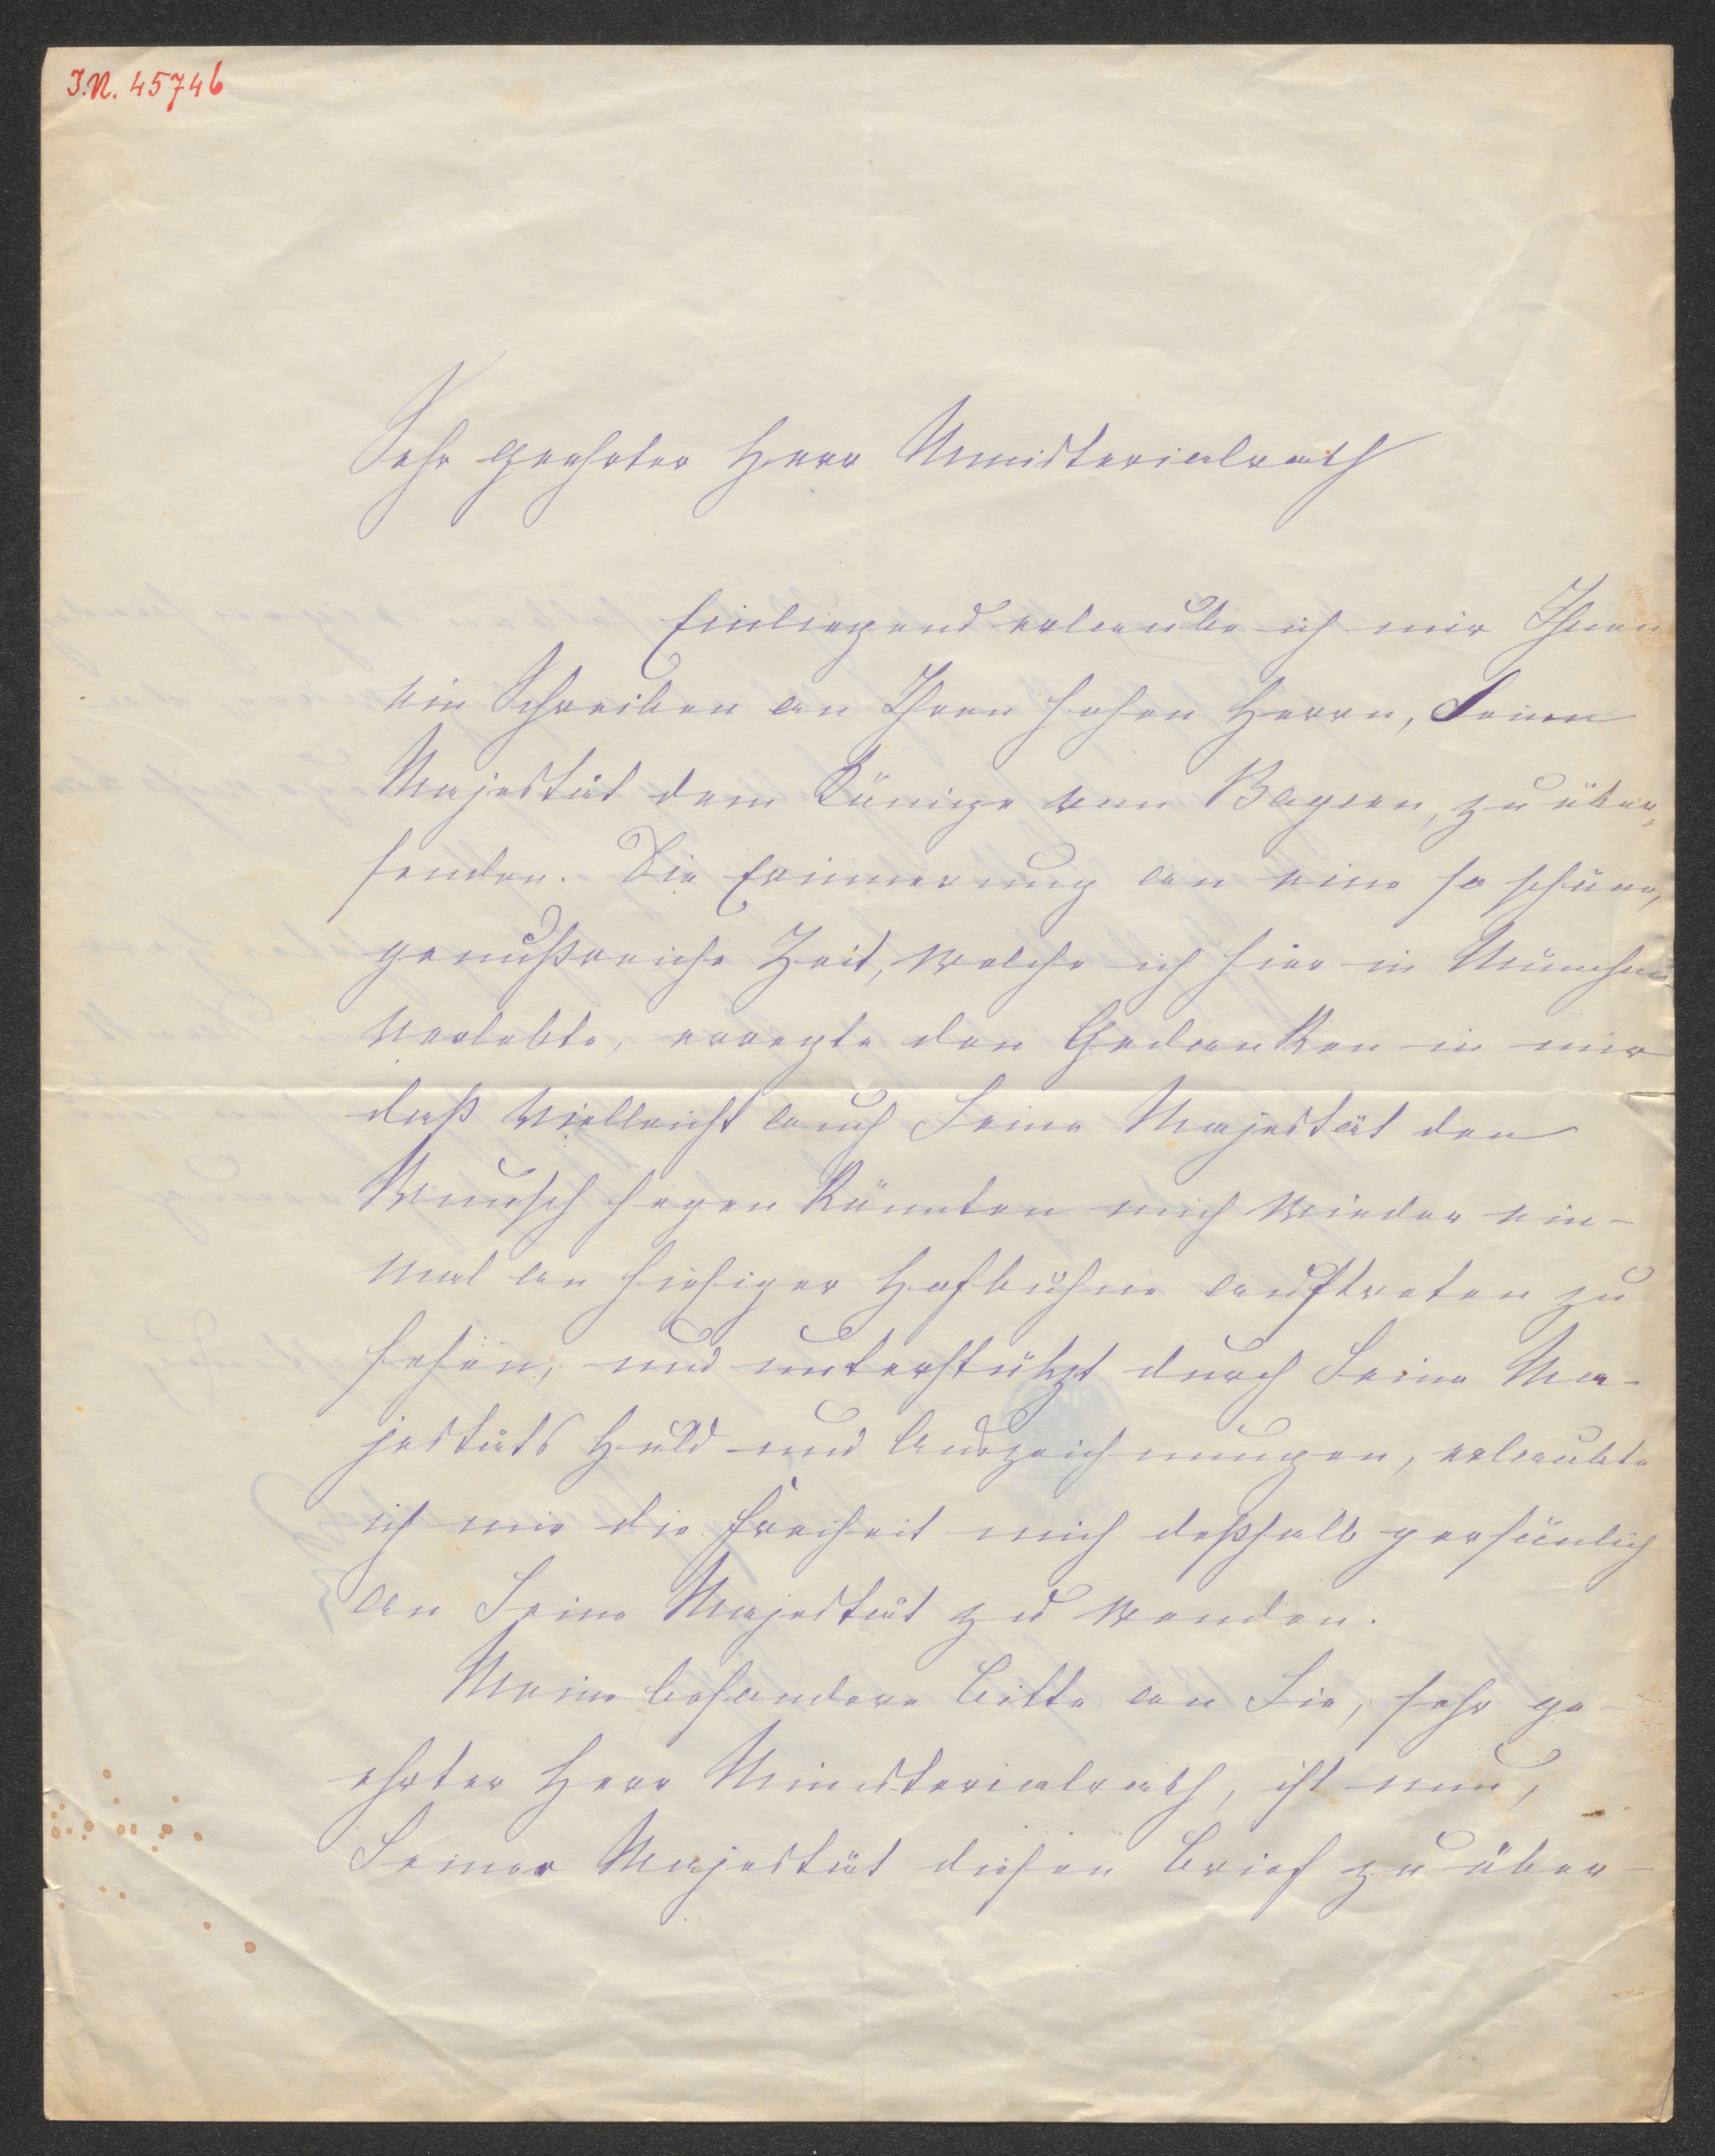 I.N. 45746
Sehr geehrter Herr Ministerialrath
Einliegend erlaube ich mir Ihnen
ein Schreiben an Ihren hohen Herrn, Seiner
Majestät dem Könige von Bayern, zu über-
senden. Die Erinnerung an eine so schöne,
genußreiche Zeit, welche ich hier in München
verlebte, erregte den Gedanken in mir
daß vielleicht auch Seine Majestät den
Wunsch hegen könnten mich wieder ein-
mal an hiesiger Hofbühne auftreten zu
sehen, und unterstützt durch Seine Ma-
jestäts Huld und Auszeichnungen, erlaubte
ich mir die Freiheit mich deßhalb persönlich
an Seine Majestät zu wenden.
Meine besondere Bitte an Sie, sehr ge-
ehrter Herr Ministerialrath, ist nun,
Seiner Majestät diesen Brief zu über-